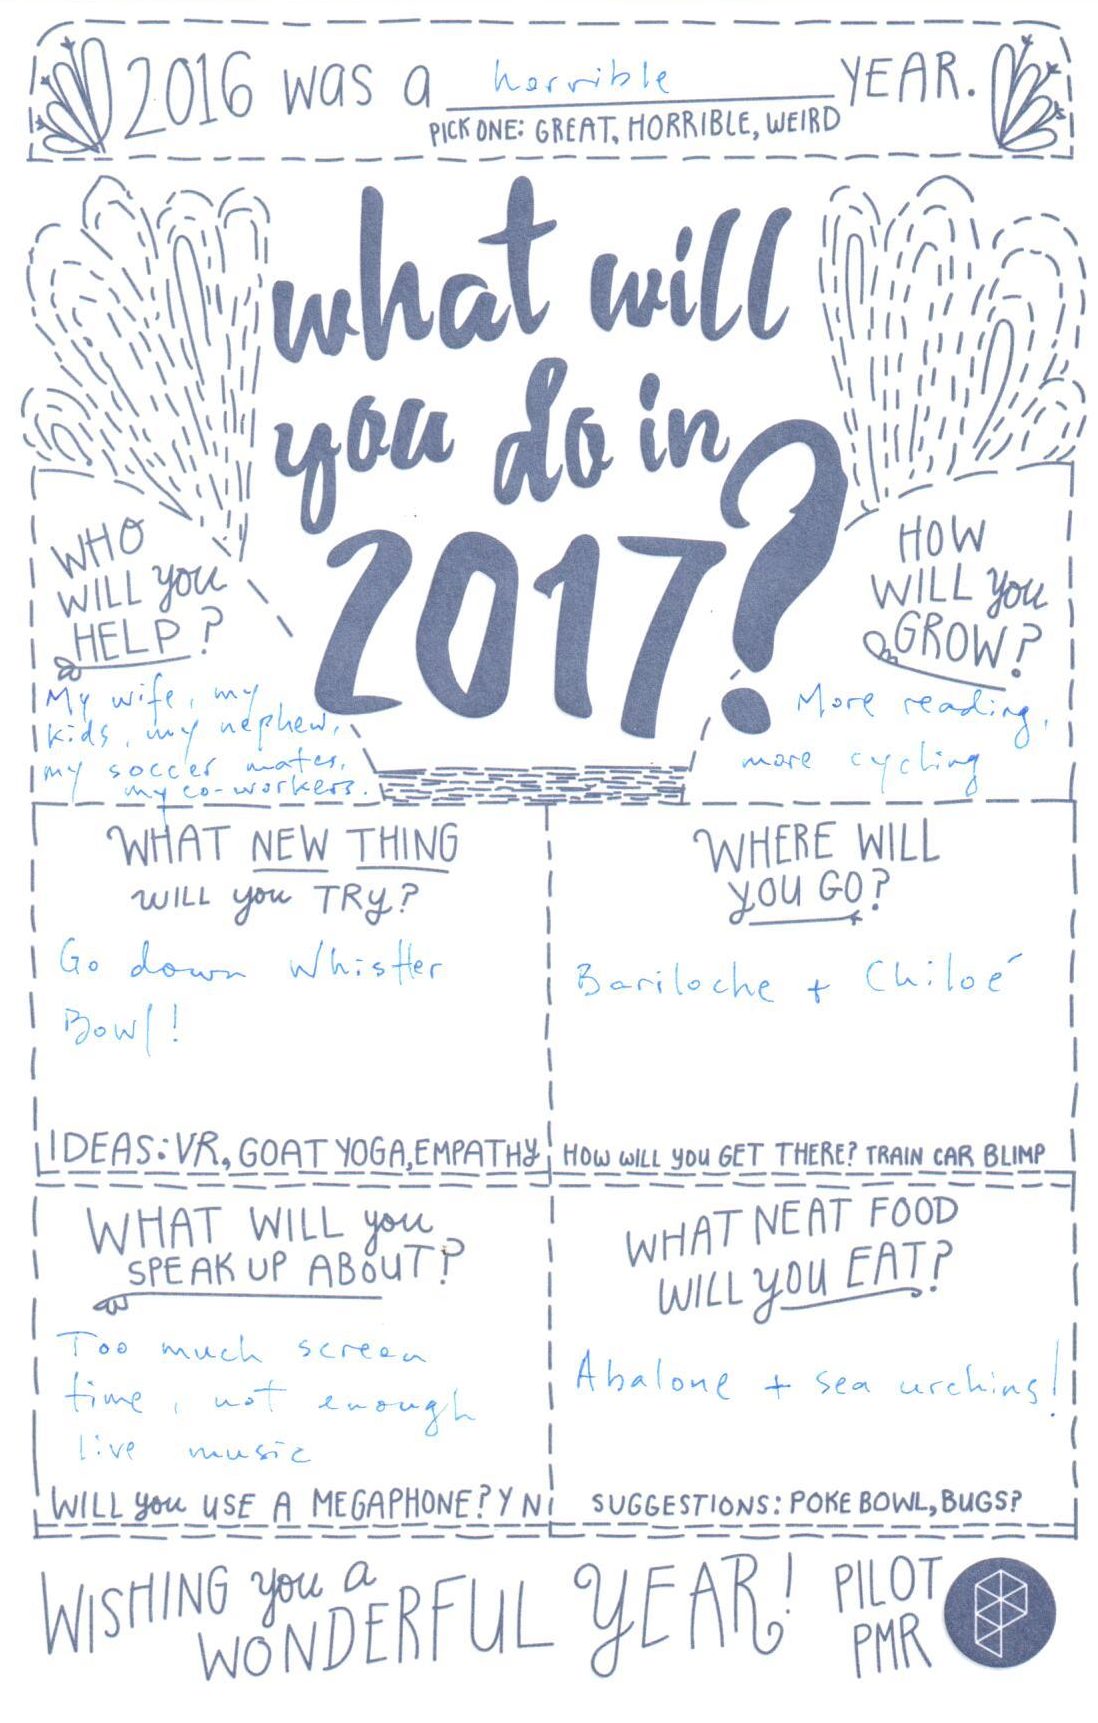 2016 was a horrible YEAR.
PICK ONE: GREAT, HORRIBLE, WEIRD
what will
you do in
2017?
WHO
WILL you
HELP?
My wife, my
kids, my nephew,
my soccer mates,
my co-workers.
HOW
WILL you
GROW?
More reading,
more cycling
WHAT NEW THING
WILL you TRy?
Go down Whistler
Bowl!
IDEAS: VR, GOAT YOGA, EMPATHy
WHERE WILL
yOU GO?
Bariloche + Chiloé
HOW WILL yOU GET THERE? TRAIN CAR BLIMP
WHAT WILL you
SPEAK UP ABOUT?
Too much screen
time, not enough
live music
WILL you USE A MEGAPHONE? Y N
WHAT NEAT FOOD
WILL yOU EAT?
Abalone + sea urchins!
SUGGESTIONS: POKE BOWL, BUGS?
WISHING you a
WONDERFUL YEAR!
PILOT
PMR